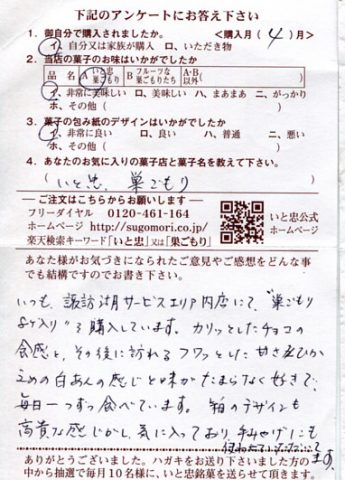 下記のアンケートにお答え下さい
1. 御自分で購入されましたか。 <購入月( 4 )月>
イ、自分又は家族が購入 ロ、いただき物
2. 当店の菓子のお味はいかがでしたか
品名 A いと忠巣ごもり B フルーツな巣ごもりたち A・B以外( )
イ、非常に美味しい ロ、美味しい ハ、まあまあ ニ、がっかり
ホ、その他( )
3. 菓子の包み紙のデザインはいかがでしたか
イ、非常に良い ロ、良い ハ、普通 ニ、悪い
ホ、その他( )
4. あなたのお気に入りの菓子店と菓子名を教えて下さい。
( いと忠、巣ごもり )
ご注文はこちらからお願いします
フリーダイヤル 0120-461-164
ホームページ http://sugomori.co.jp/
楽天検索キーワード「いと忠」又は「巣ごもり」
いと忠公式
ホームページ
あなた様がお気づきになられたご意見やご感想をどんな事
でも結構ですのでお書き下さい。
いつも、諏訪湖サービスエリア内店にて、"巣ごもり
8ケ入り"を購入しています。カリッとしたチョコの
食感と、その後に訪れるフワッとした甘さひか
えめの白あんの感じと味がたまらなく好きで、
毎日一つずつ食べています。箱のデザインも
高貴な感じがし、気に入っており、手みやげにも
使わせていただいて
ます。
ありがとうございました。ハガキをお送り下さいました方の
中から抽選で毎月10名様に、いと忠銘菓を送らせて頂きます。